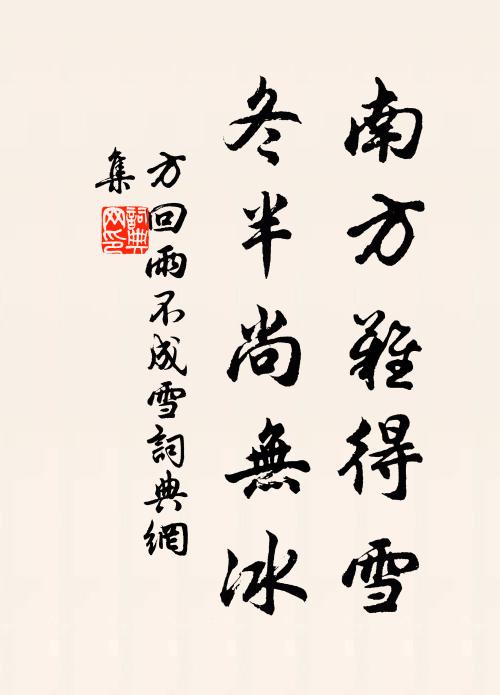 南方難得雪
冬半尚無冰
方回雨不成雪詞典網
集
詞典
网印